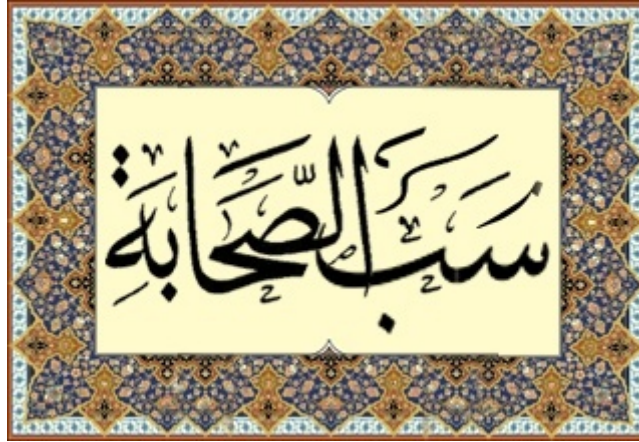 سَبَ الصَّحَابَةِ